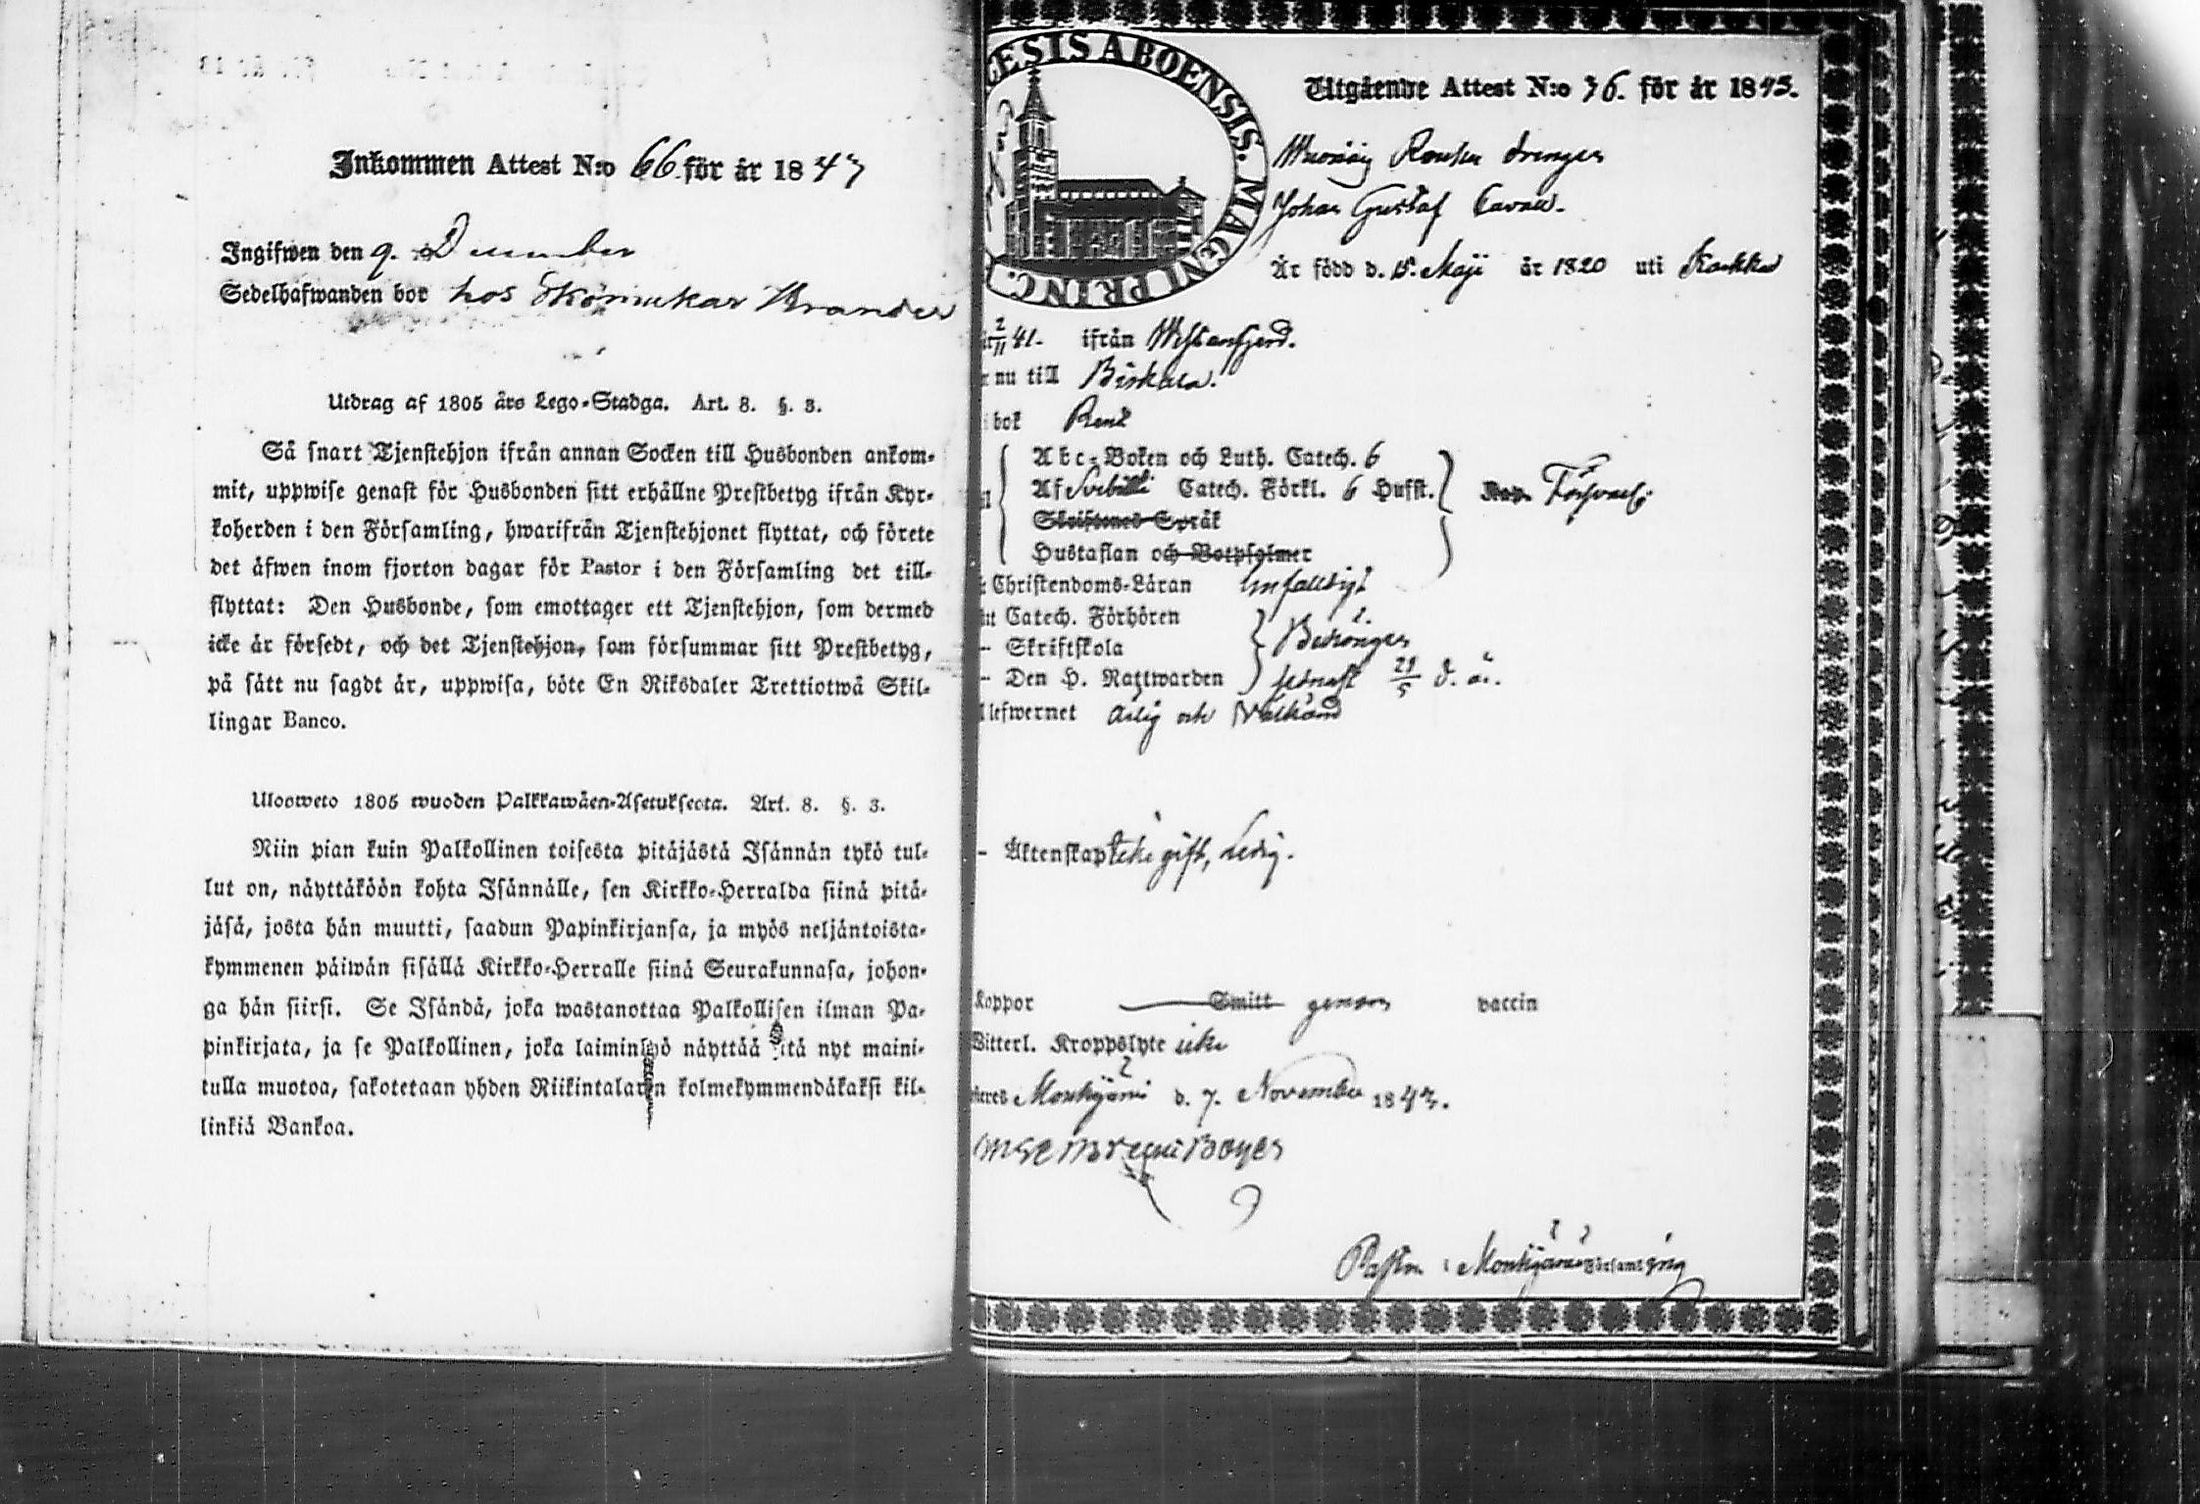 Inkommen Attest N:o 66. för år 1843
Ingifwen den 9. December
Sedelhafwanden bor hos Skörinckar Brander
Utdrag af 1805 års Lego-Stadga. Art. 8. §. 3.
Så snart Tjenstehjon ifrån annan Socken till Husbonden ankom-
mit, uppwise genast för Husbonden sitt erhållne Prestbetyg ifrån Kyr-
koherden i den Församling, hwarifrån Tjenstehjonet flyttat, och förete
det åfwen inom fjorton dagar för Pastor i den Församling det till-
flyttat: Den Husbonde, som emottager ett Tjenstehjon, som dermed
icke är försedt, och det Tjenstehjon, som försummar sitt Prestbetyg,
på sätt nu sagdt är, uppwisa, böte En Riksdaler Trettiotwå Skil-
lingar Banco.
Ulosweto 1805 wuoden Palkkawäen-Asetuksesta. Art. 8. §. 3.
Niin pian kuin Palkollinen toisesta pitäjästä Isännän tykö tul-
lut on, näyttäköön kohta Isännälle, sen Kirkko-Herralda siinä pitä-
jäsä, josta hän muutti, saadun Papinkirjansa, ja myös neljäntoista-
kymmenen päiwän sisällä Kirkko-Herralle siinä Seurakunnasa, johon-
ga hän siirsi. Se Isändä, joka wastanottaa Palkollisen ilman Pa-
pinkirjata, ja se Palkollinen, joka laiminlyö näyttää sitä nyt maini-
tulla muotoa, sakotetaan yhden Riikintalarin kolmekymmendäkaksi kil-
linkiä Bankoa.
CESIS ABOENSIS. MAGNI PRINC.
Utgående Attest N:o 36. för år 1843.
drengen
Johan Gustaf
År född d. 15. Maji år 1820 uti
2/11 41. ifrån Westanfjerd.
nu till Birkala.
bok Rent
Abc-Boken och Luth. Catech. 6
Af Svebilii Catech. Förkl. 6 Hufst. Försvarl.
Skriftenes Språk
Hustaflan och Botpsalmer
Christendoms-Läran Enfaldigt
Catech. Förhören
- Skriftskola Bevistnges
- Den H. Nattwarden sednast 21/5 d. år.
lefwernet Ärlig och Välkänd
- Äktenskap icke gift, Ledig.
Koppor Smitt genom vaccin
Witterl. Kroppslyte icke
d. 7. November 1843.
Pastor i Församling